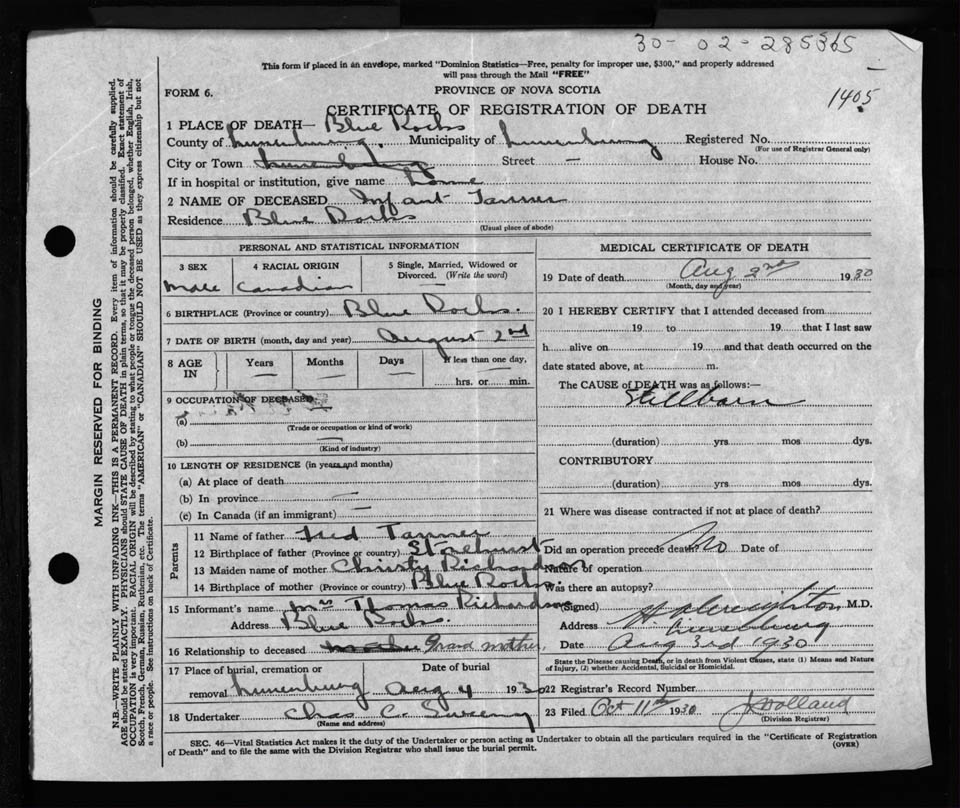 30-02-285365
This form if placed in an envelope, marked "Dominion Statistics—Free, penalty for improper use, $300," and properly addressed
will pass through the Mail "FREE"
FORM 6.
PROVINCE OF NOVA SCOTIA
1405
CERTIFICATE OF REGISTRATION OF DEATH
1 PLACE OF DEATH— Blue Rocks
County of Lunenburg. Municipality of Lunenburg Registered No.
(For use of Registrar General only)
City or Town Lunenburg Street — House No.
If in hospital or institution, give name Home
2 NAME OF DECEASED Infant Tanner
Residence Blue Rocks
(Usual place of abode)
PERSONAL AND STATISTICAL INFORMATION
3 SEX 4 RACIAL ORIGIN 5 Single, Married, Widowed or
Divorced. (Write the word)
male Canadian —
6 BIRTHPLACE (Province or country) Blue Rocks.
7 DATE OF BIRTH (month, day and year) August 2nd
8 AGE IN Years Months Days If less than one day,
— — — hrs. or min.
9 OCCUPATION OF DECEASED
(a)
(Trade or occupation or kind of work)
(b) —
(Kind of industry)
10 LENGTH OF RESIDENCE (in years and months)
(a) At place of death
(b) In province —
(c) In Canada (if an immigrant) —
Parents
11 Name of father Fred Tanner
12 Birthplace of father (Province or country) Stonehurst
13 Maiden name of mother Christy Richardson
14 Birthplace of mother (Province or country) Blue Rocks.
15 Informant's name Mrs Thomas Richardson
Address Blue Rocks.
16 Relationship to deceased mother Grand mother,
17 Place of burial, cremation or Date of burial
removal Lunenburg Aug 4 1930
18 Undertaker Chas C. Sweeny
(Name and address)
MEDICAL CERTIFICATE OF DEATH
19 Date of death Aug 2nd 1930
(Month, day and year)
20 I HEREBY CERTIFY that I attended deceased from
19 to 19 that I last saw
h alive on 19 and that death occurred on the
date stated above, at m.
The CAUSE of DEATH was as follows:—
Stillborn
(duration) yrs mos dys.
CONTRIBUTORY
(duration) yrs mos dys.
21 Where was disease contracted if not at place of death?
Did an operation precede death? No Date of
Name of operation
Was there an autopsy?
(Signed) H. A. Creighton M.D.
Address Lunenburg
Date Aug 3rd 1930
State the Disease causing Death, or in death from Violent Causes, state (1) Means and Nature
of Injury, (2) whether Accidental, Suicidal or Homicidal.
22 Registrar's Record Number
23 Filed Oct 11th 1930 Holland
(Division Registrar)
SEC. 46—Vital Statistics Act makes it the duty of the Undertaker or person acting as Undertaker to obtain all the particulars required in the "Certificate of Registration
of Death" and to file the same with the Division Registrar who shall issue the burial permit. (OVER)
MARGIN RESERVED FOR BINDING
N.B.—WRITE PLAINLY WITH UNFADING INK—THIS IS A PERMANENT RECORD. Every item of information should be carefully supplied.
AGE should be stated EXACTLY. PHYSICIANS should STATE CAUSE OF DEATH in plain terms, so that it may be properly classified. Exact statement of
OCCUPATION is very important. RACIAL ORIGIN will be described by stating to what people or tongue the deceased person belonged, whether English, Irish,
Scotch, French, German, Russian, Ruthenian, etc. The terms "AMERICAN" or "CANADIAN" SHOULD NOT BE USED as they express citizenship but not
a race or people. See instructions on back of Certificate.